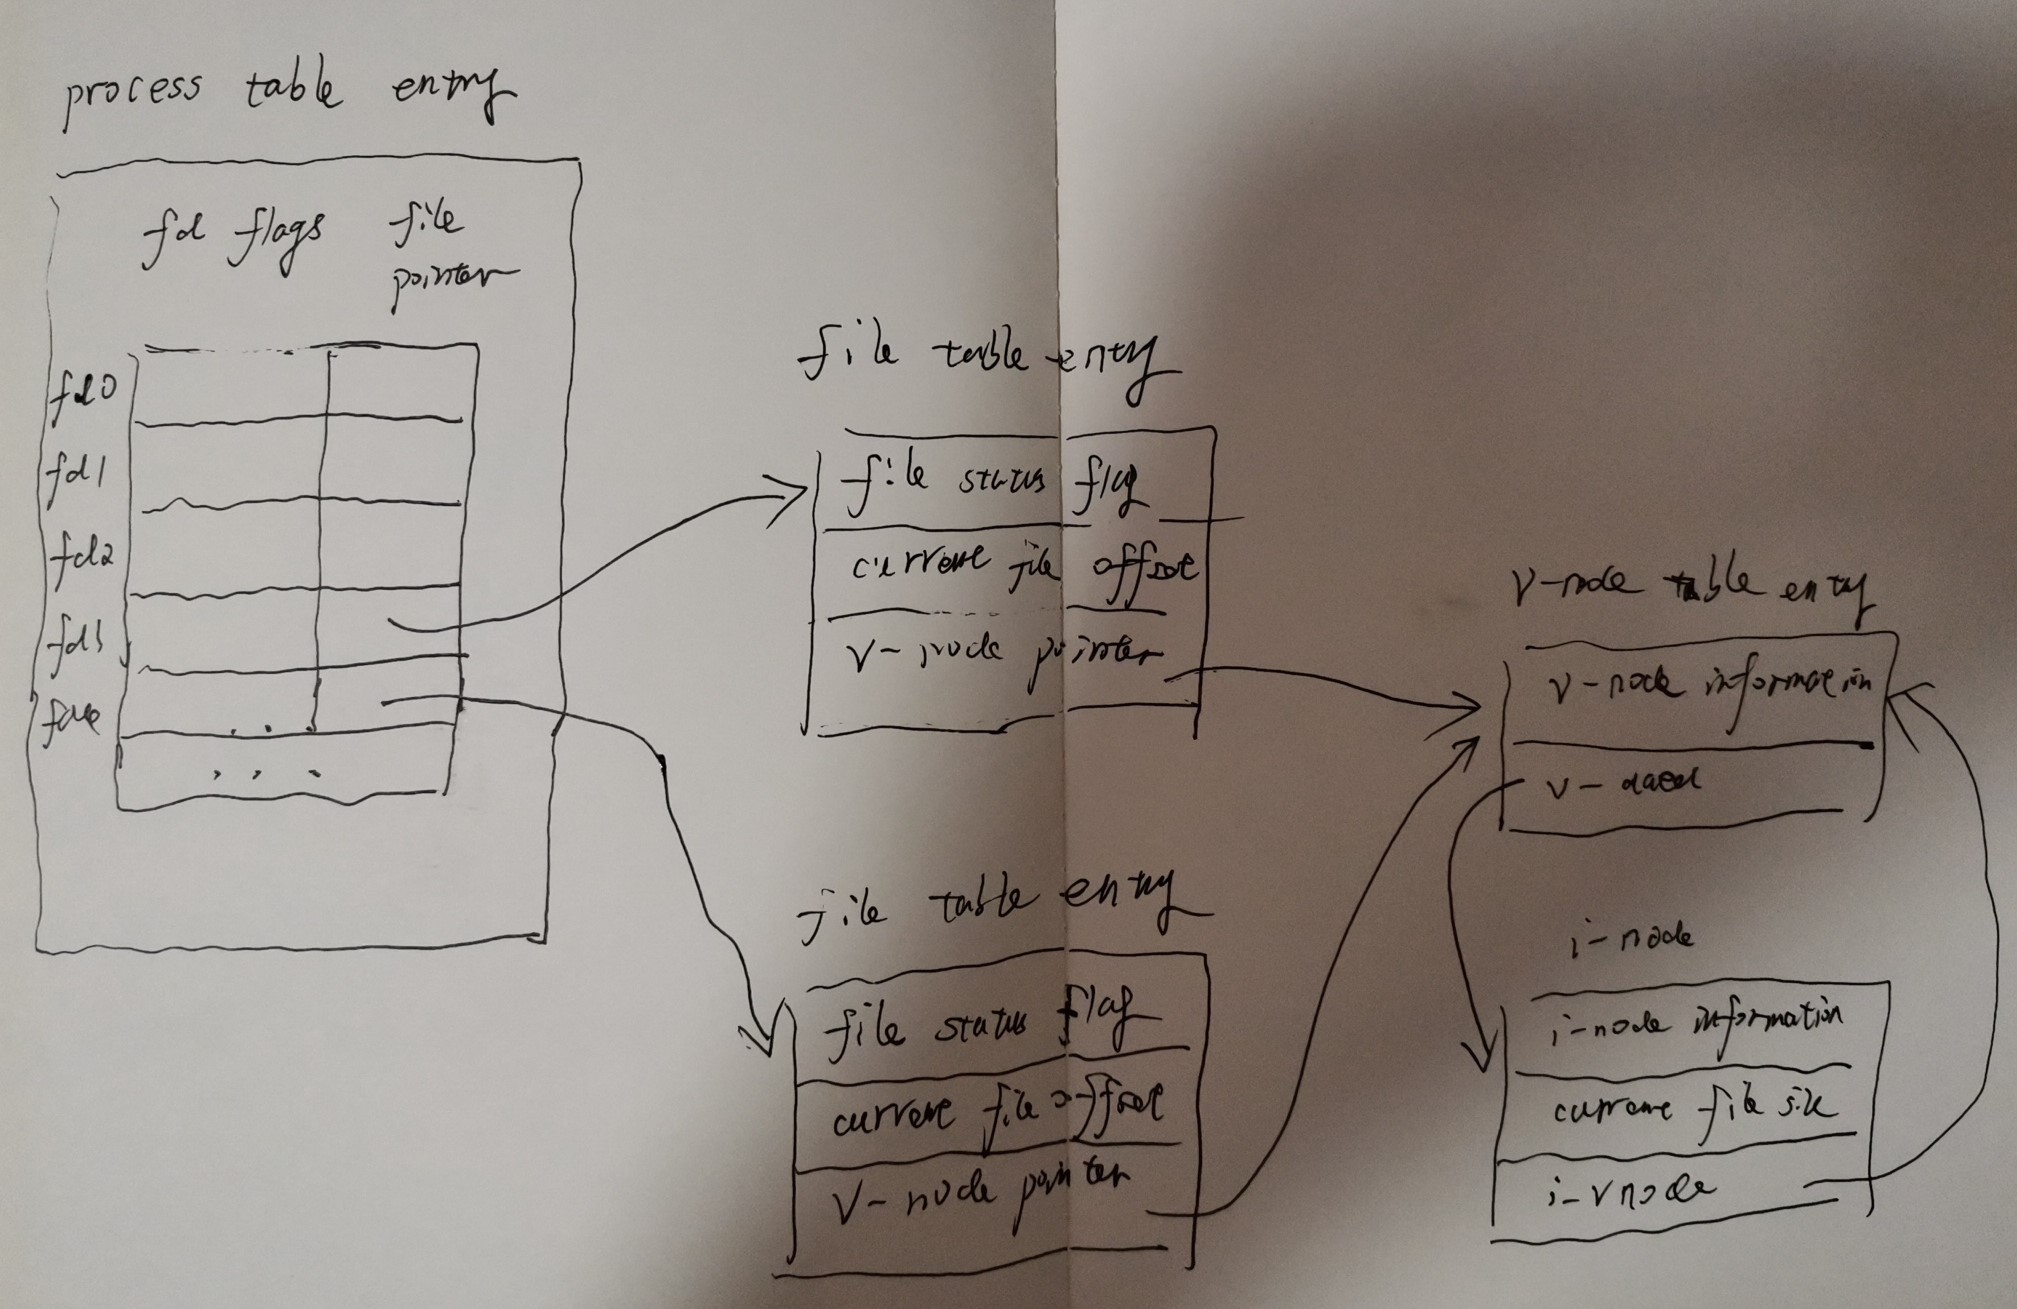 process table entry
fd flags
file
pointer
fd0
fd1
fd2
fd3
file table entry
file status flag
current file offset
v-node pointer
file table entry
file status flag
current file offset
v-node pointer
v-node table entry
v-node information
v-
i-node
i-node information
current file size
i-vnode